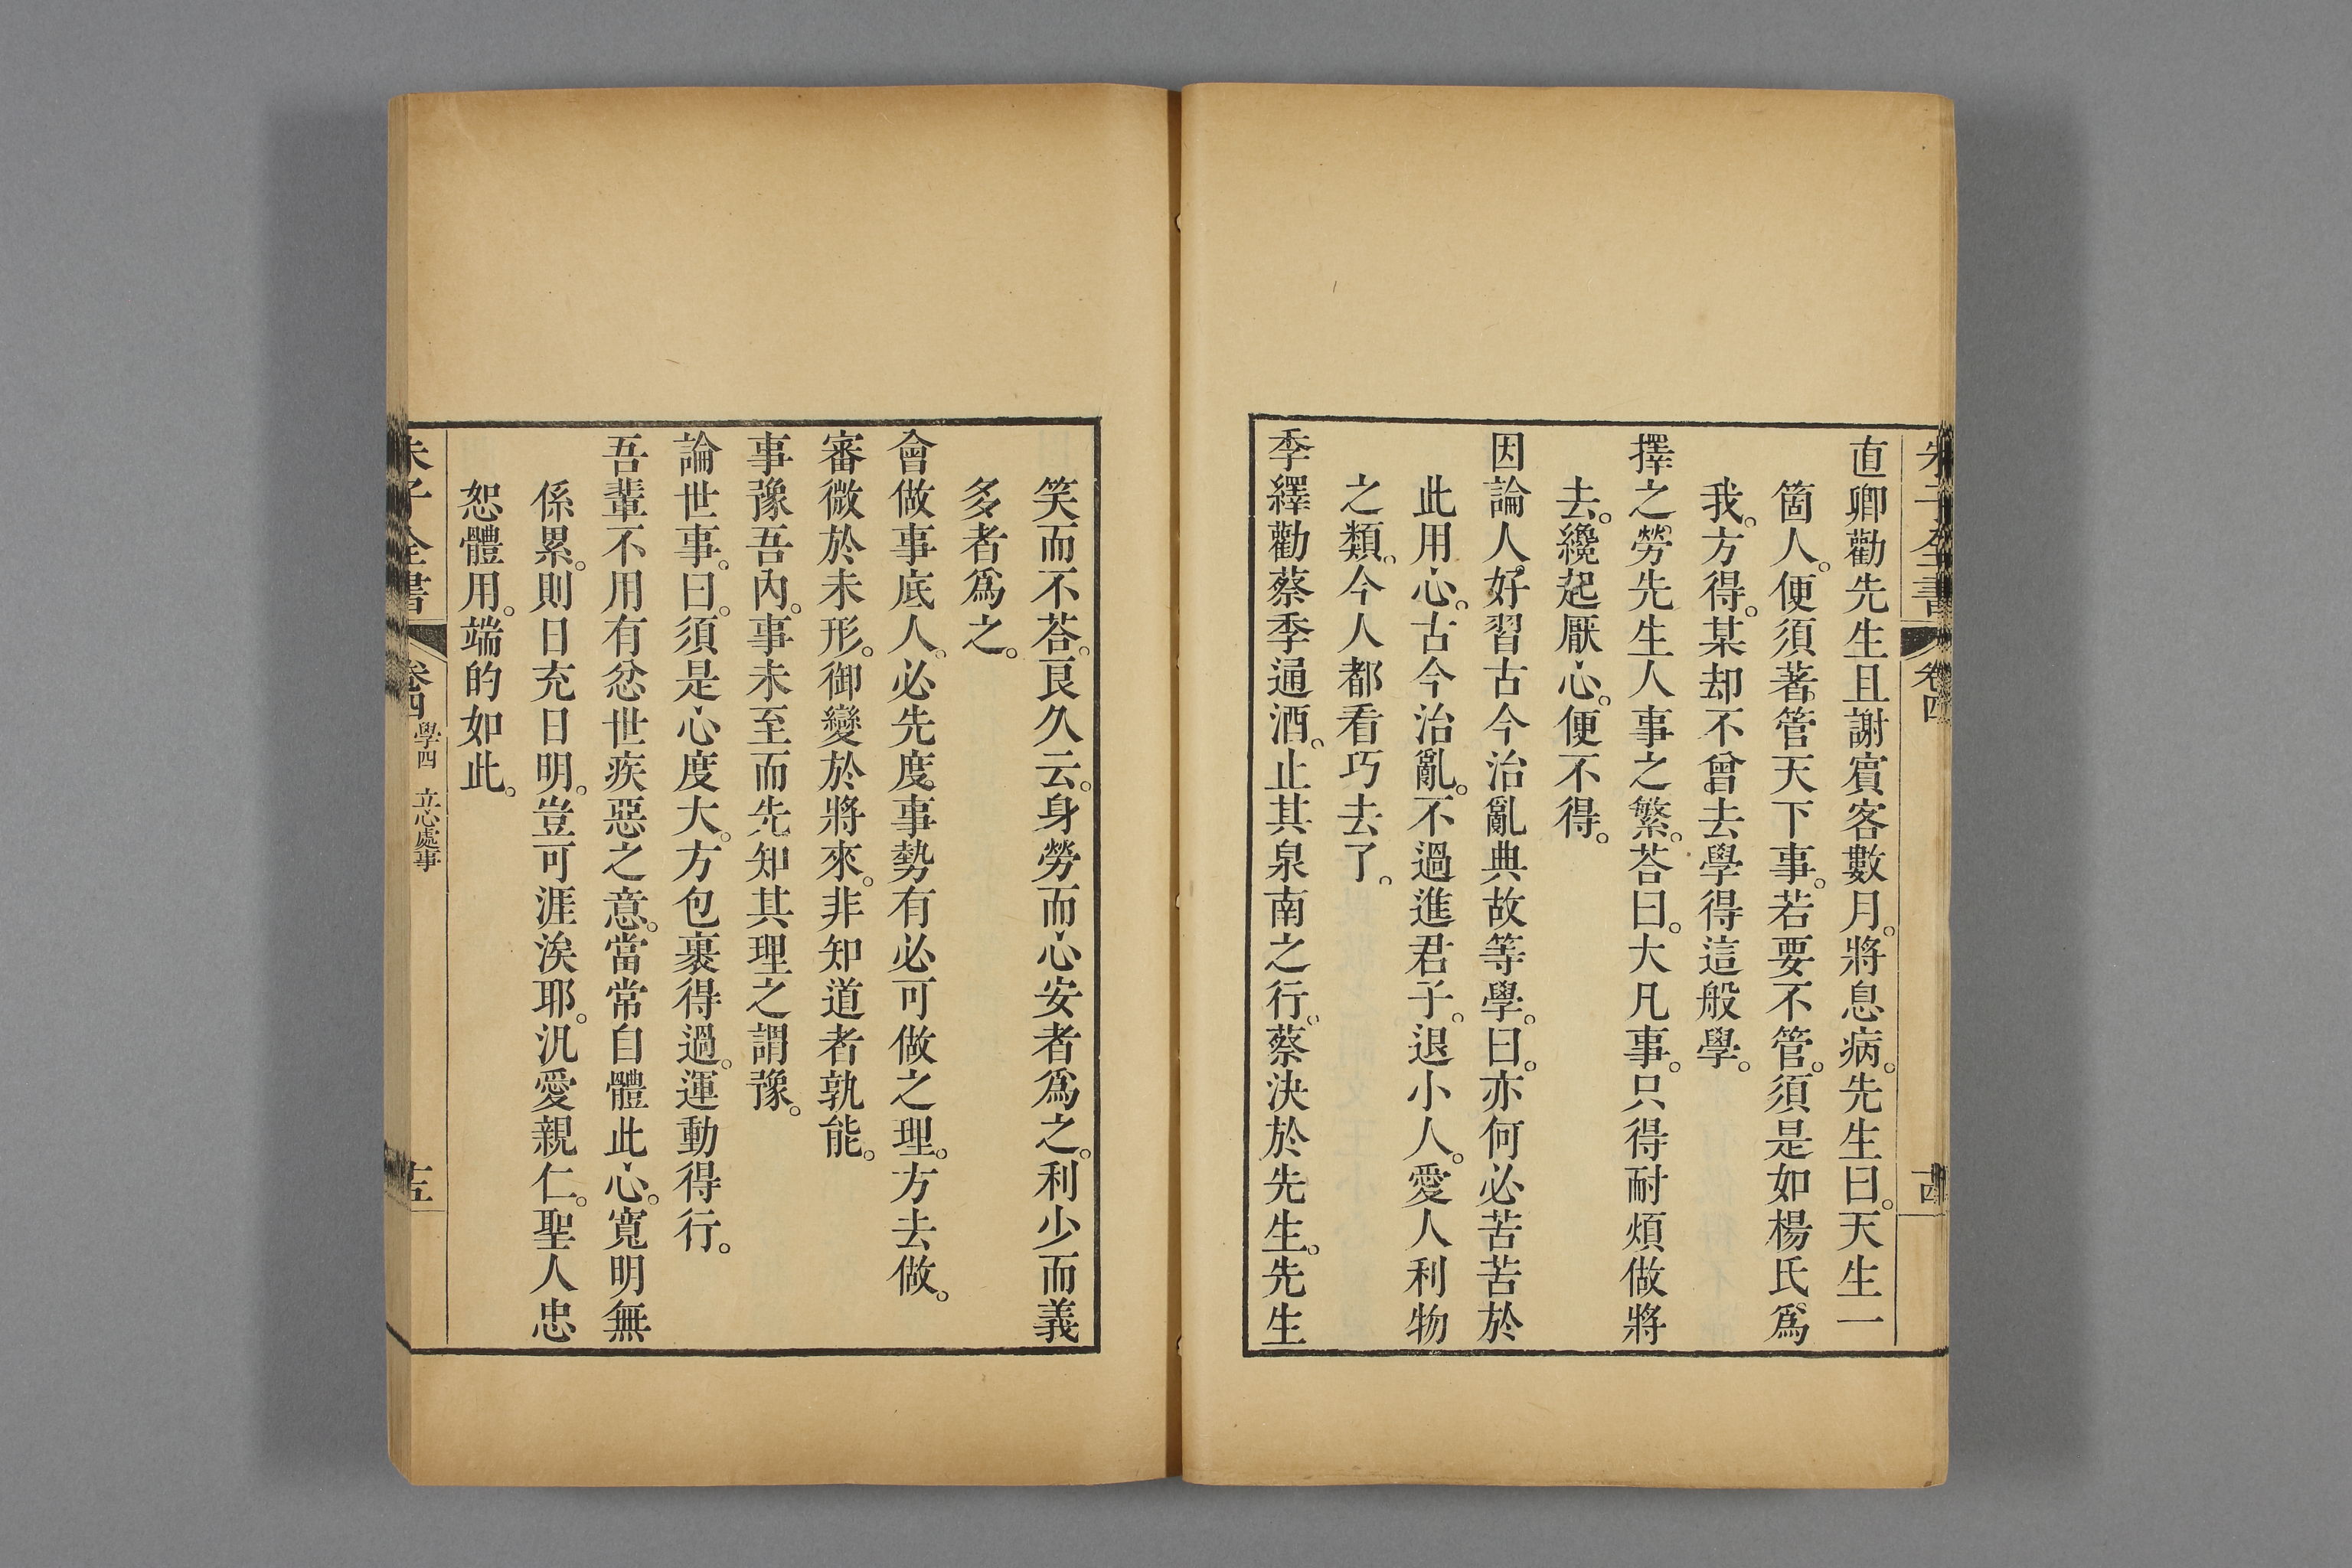 朱子全書 卷四 十四
直卿勸先生且謝賓客數月。將息病。先生曰。天生一
箇人。便須著管天下事。若要不管。須是如楊氏爲
我。方得。某却不曾去學得這般學。
擇之勞先生人事之繁。荅曰。大凡事。只得耐煩做將
去。纔起厭心。便不得。
因論人好習古今治亂典故等學。曰。亦何必苦苦於
此用心。古今治亂。不過進君子。退小人。愛人利物
之類。今人都看巧去了。
季繹勸蔡季通酒。止其泉南之行。蔡決於先生。先生
笑而不荅。良久云。身勞而心安者爲之。利少而義
多者爲之。
會做事底人。必先度事勢有必可做之理。方去做。
審微於未形。御變於將來。非知道者孰能。
事豫吾內。事未至而先知其理之謂豫。
論世事。曰。須是心度大。方包裹得過。運動得行。
吾輩不用有忿世疾惡之意。當常自體此心。寬明無
係累。則日充日明。豈可涯涘耶。汎愛親仁。聖人忠
恕體用。端的如此。
朱子全書 卷四 學四 立心處事 十五